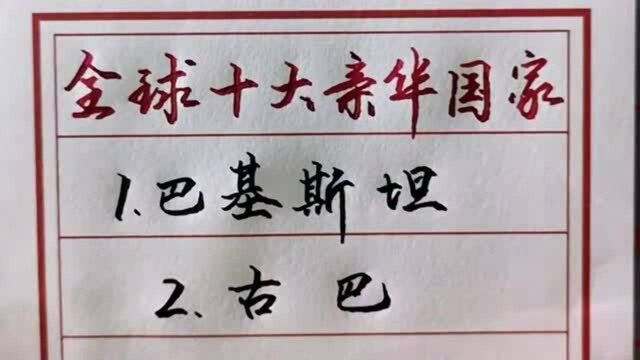 全球十大亲华国家
1.巴基斯坦
2.古巴